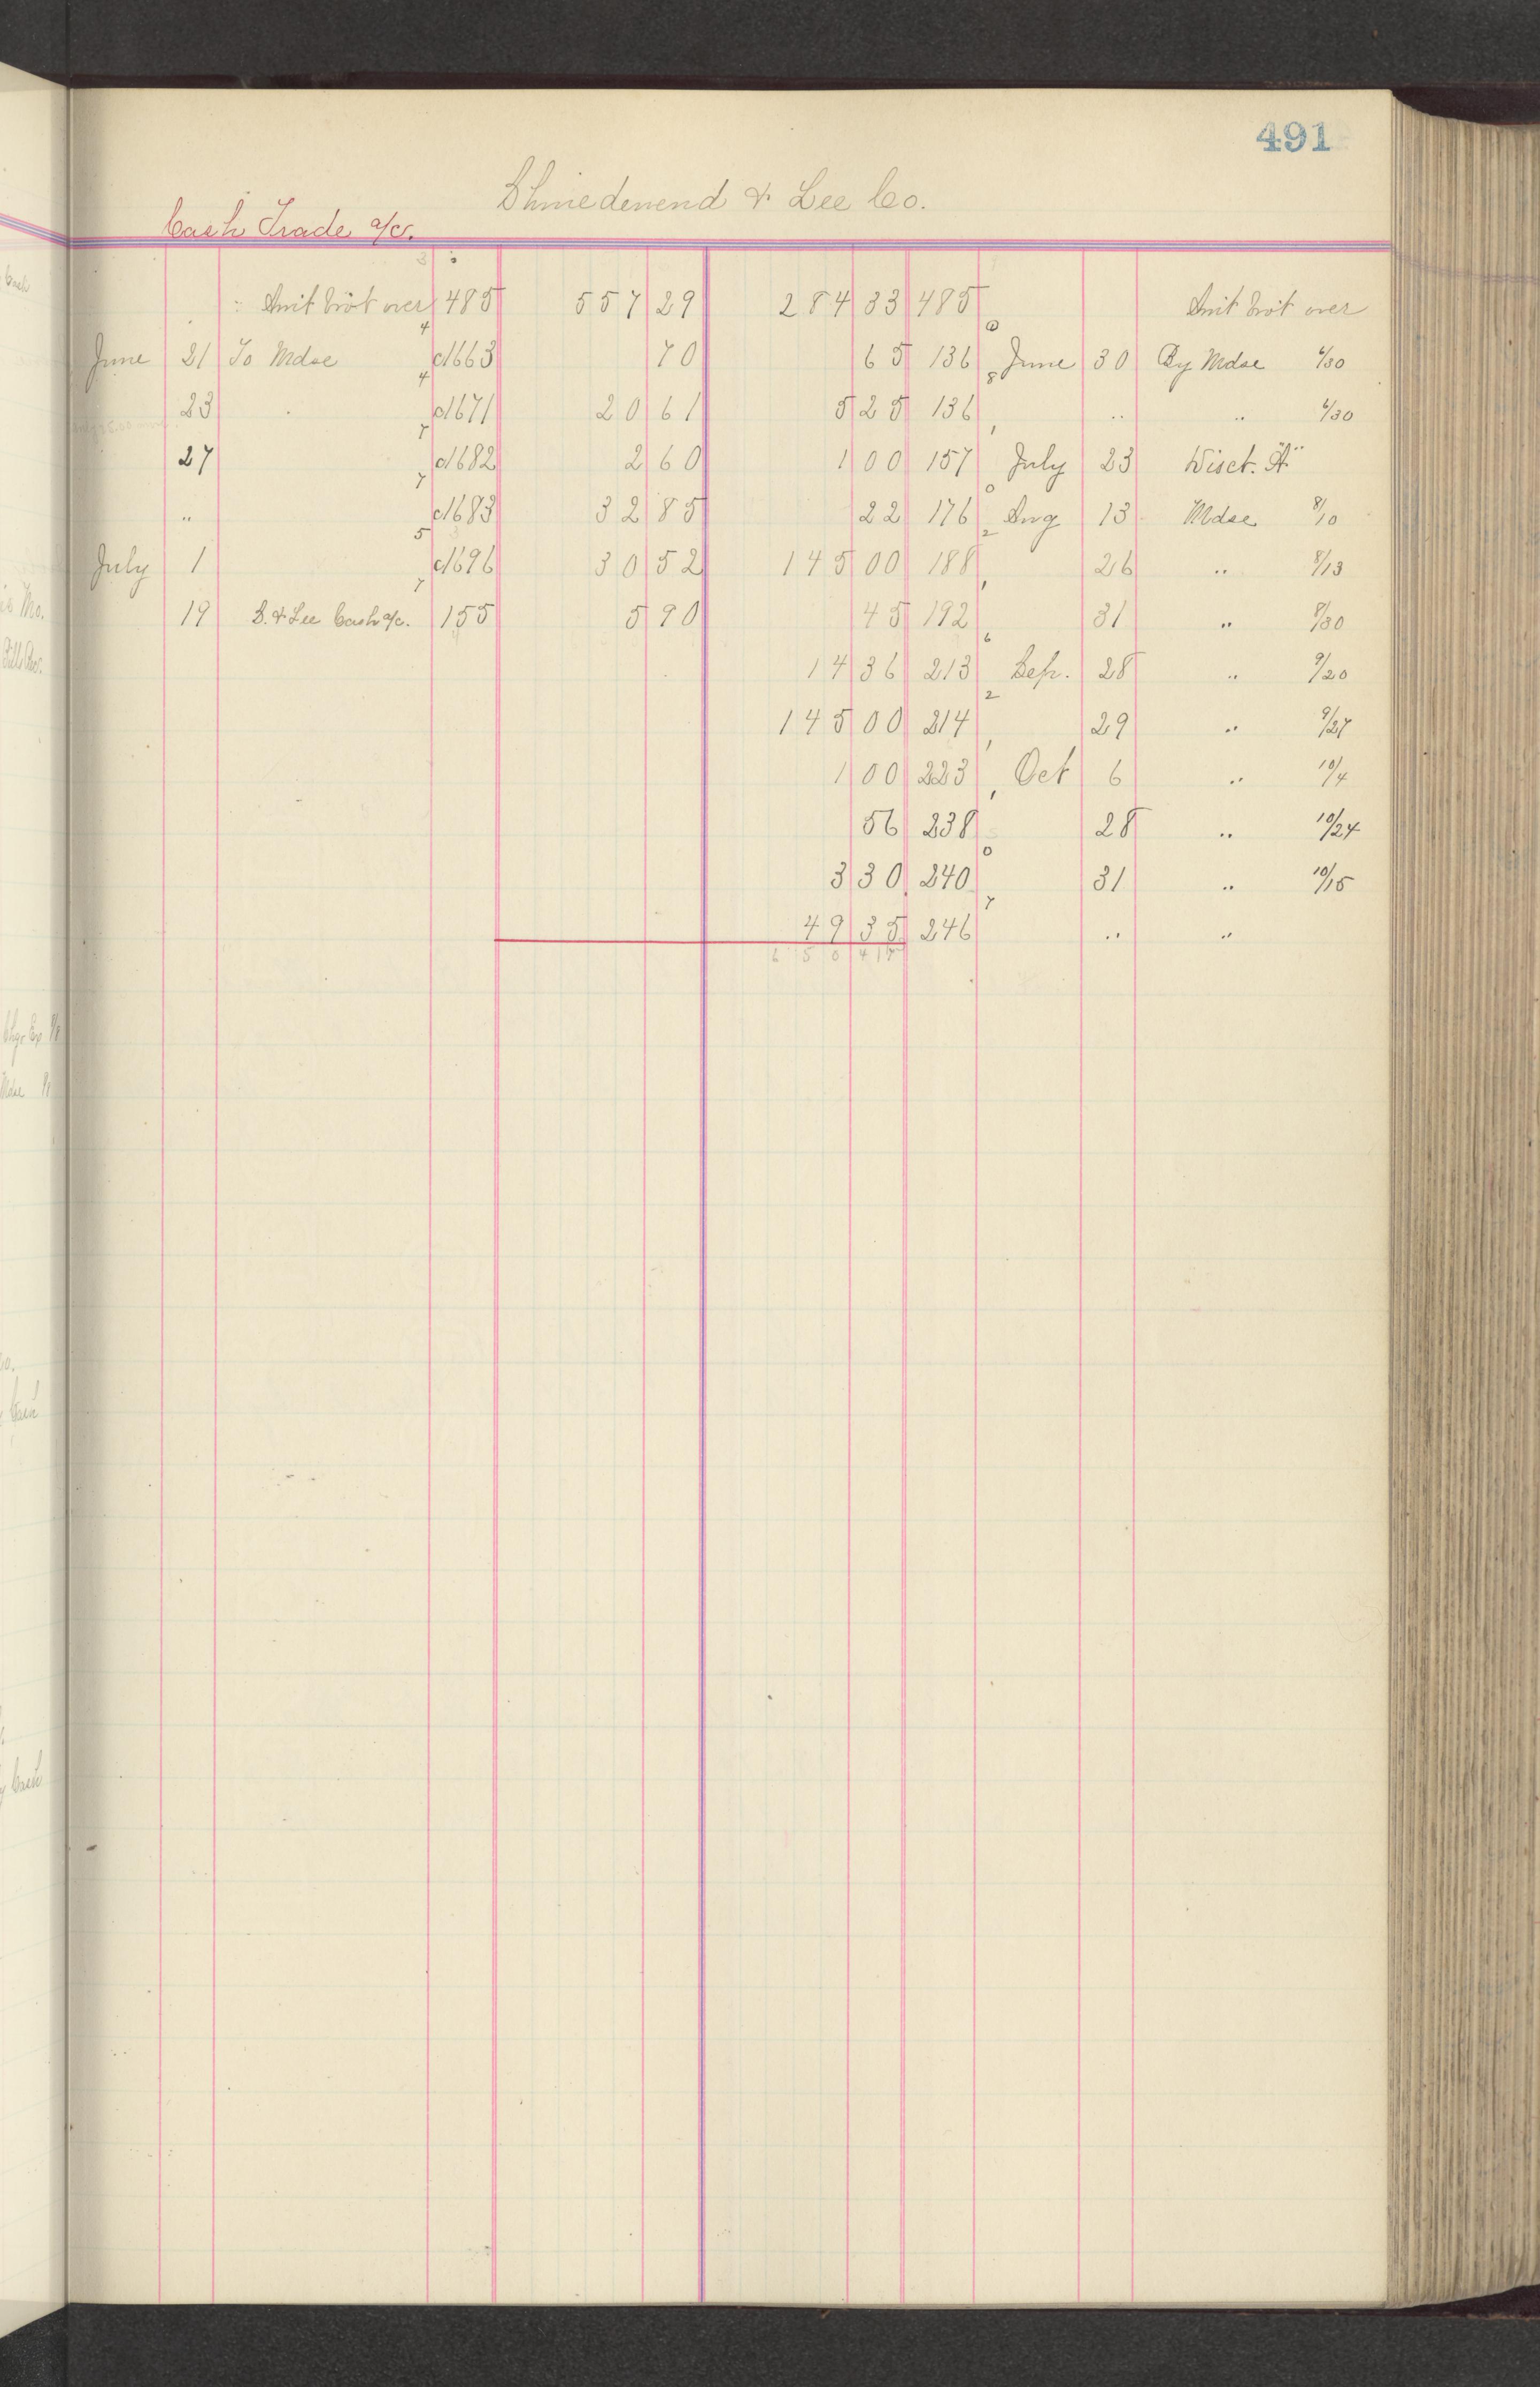 491
Shniedewend & Lee Co.
Cash Trade a/c.
Amt brot over 485 557 29 284 33 485 Amt brot over
June 21 To Mdse c1663 70 65 136 June 30 By Mdse 6/30
23 c1671 20 61 5 25 136 " " 6/30
27 c1682 2 60 1 00 157 July 23 Disct. "A"
" c1683 32 85 22 176 Aug 13 Mdse 8/10
July 1 c1696 30 52 145 00 188 26 " 8/13
19 S. & Lee Cash a/c. 155 5 90 45 192 31 " 8/30
14 36 213 Sep. 28 " 9/20
145 00 214 29 " 9/27
1 00 223 Oct 6 " 10/4
56 238 28 " 10/24
3 30 240 31 " 10/15
49 35 246 " "